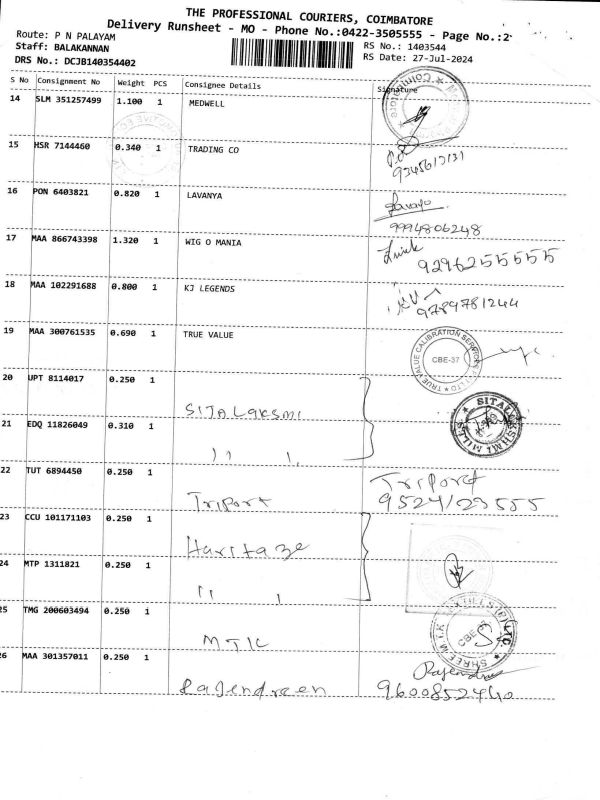 THE PROFESSIONAL COURIERS, COIMBATORE
Delivery Runsheet - MO - Phone No.:0422-3505555 - Page No.:2
Route: P N PALAYAM
Staff: BALAKANNAN
DRS No.: DCJB140354402
RS No.: 1403544
RS Date: 27-Jul-2024
S No Consignment No Weight PCS Consignee Details Signature
14 SLM 351257499 1.100 1 MEDWELL
15 HSR 7144460 0.340 1 TRADING CO
16 PON 6403821 0.820 1 LAVANYA
9994806248
17 MAA 866743398 1.320 1 WIG O MANIA
9296255555
18 MAA 102291688 0.800 1 KJ LEGENDS
9789781244
19 MAA 300761535 0.690 1 TRUE VALUE
TRUE VALUE CALIBRATION SERVICES
CBE-37
20 UPT 8114017 0.250 1
SITALAKSMI
21 EDQ 11826049 0.310 1
,, ,,
22 TUT 6894450 0.250 1
Triport
Triport
9524123555
23 CCU 101171103 0.250 1
Haritaze
24 MTP 1311821 0.250 1
,, ,
25 TMG 200603494 0.250 1
MTK
26 MAA 301357011 0.250 1
Rajendreen
Rajendran
9600852440